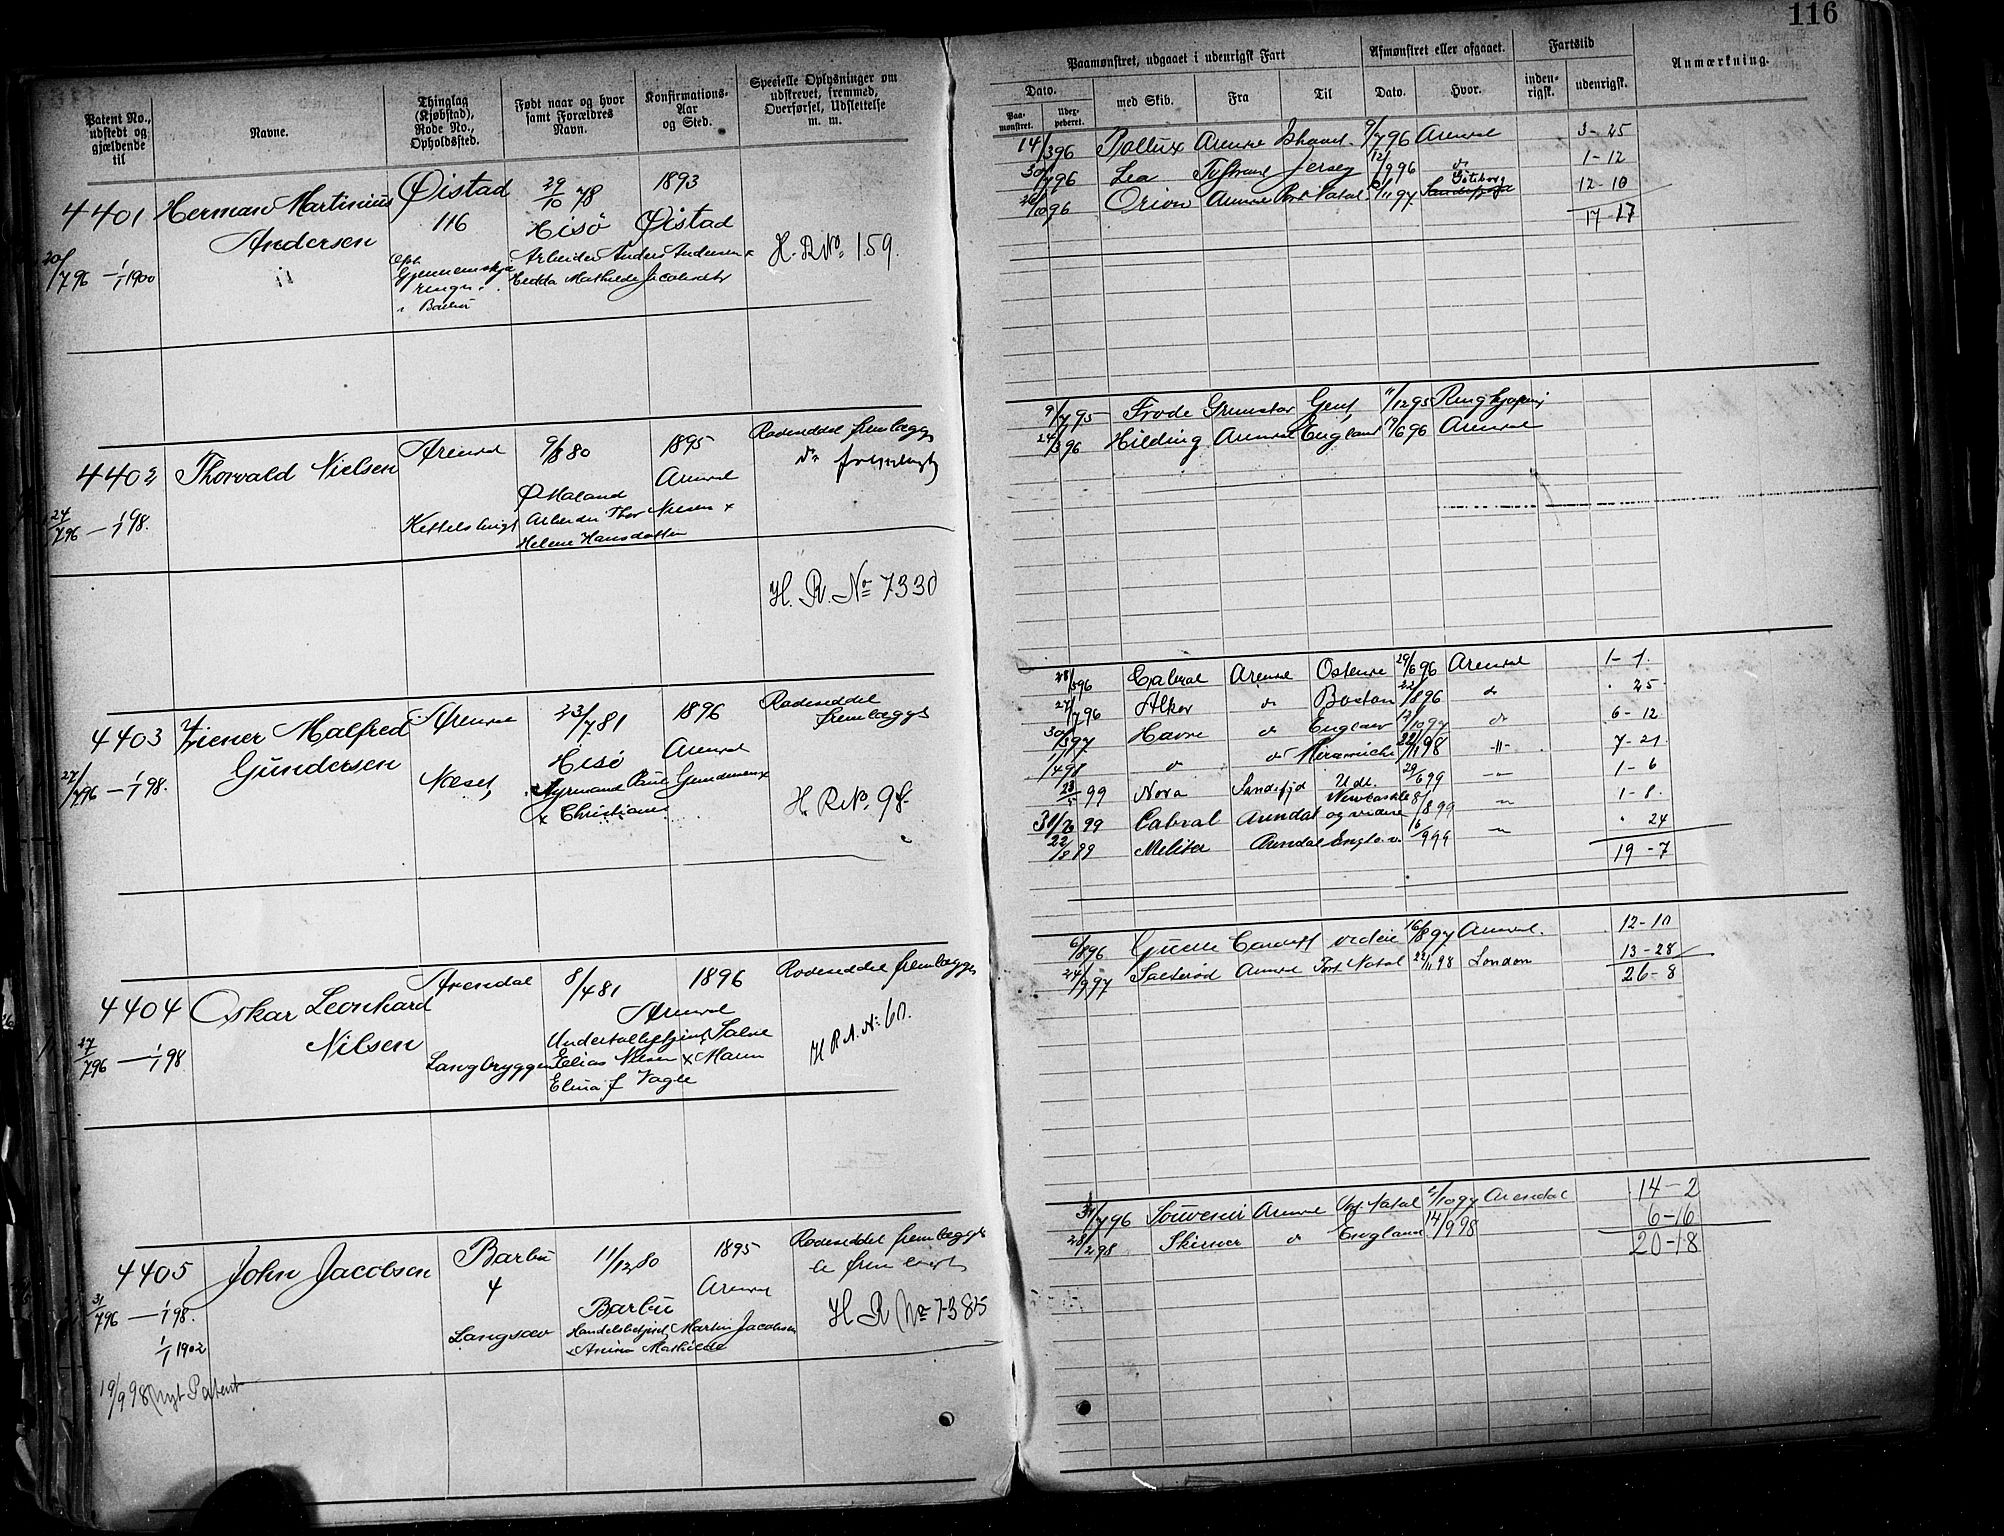 116
Patent No., udstedt og gjældende til
Navne.
Thinglag (Kjøbstad), Rode No., Opholdssted.
Født naar og hvor samt Forældres Navn.
Konfirmations-Aar og Sted.
Specielle Oplysninger om udskrevet, fremmed, Overførsel, Udslettelse m. m.
Paamønstret, udgaaet i udenrigsk Fart
Afmønstret eller afgaaet.
Fartstid
Anmærkning.
Dato.
Paa-mønstret.
med Skib.
Fra
Til
Dato.
Hvor.
inden-rigsk.
udenrigsk.
4401 Herman Martinius Øistad 29/10 78 1893
Andersen 116 Hisø Øistad
20/7 96 – 1/1 1900
Arbeider Anders Andersen x
Hedda Mathilde
i Barbu
H. R No. 159.
14/3 96 Pollux 9/7 96 Arendal 3-25
30/7 96 Lea Jersey 12/9 96 do 1-12
Orion Arendal Port Natal Göteborg 12-10
17-17
4402 Thorvald Nielsen Arendal 9/8 80 1895 Rodeseddel fremlægges
Ø Maland Arendal
24/7 96 – 1/1 98.
Arbeider Thor Nielsen x
Helene Hansdatter
H. R. No 7330
9/7 95 Frode Grimstad 11/12 95 Ringkjøping
24/3 96 Hilding Arendal England 96 Arendal
4403 Ziener Malfred Arendal 23/7 81 1896 Rodeseddel
Gundersen fremlægges
Hisø Arendal
27/7 96 – 1/1 98. Neset
x Christiane
H. R No. 98.
28/5 96 Cabral Arendal Ostende 29/6 96 Arendal 1-1.
27/7 96 Alkor do Boston 22/8 96 do 25
30/3 97 Havre do England 12/10 97 do 6-12
1/4 98 do do Miramichi 22/11 98 -"- 7-21
23/5 99 Nova Sandefjd Udl. 29/6 99 -"- 1-6
Newcastle
31/6 99 Cabral Arendal og videre 8/8 99 -"- 1-8.
22/8 99 Melita Arendal Engl. o. v. 16/9 99 -"- 24
19-7
4404 Oskar Leonhard Arendal 8/4 81 1896 Rodeseddel fremlægges
Nilsen Arendal
27/7 96 – 1/1 98 Langbryggen
Elias Nilsen x Maren
Elina f. Vagle
H R A. No 60.
6/8 96 Cardiff videre 16/8 97 Arendal. 12-10
24/9 97 Salterød Arendal Port Natal 22/11 98 London 13-28
26-8
4405 John Jacobsen Barbu 11/12 80 1895 Rodeseddel fremlægges
4 Arendal
31/7 96 – 1/1 98.
1/1 1902
Langsæv Barbu
Handelsbetjent Martin Jacobsen
x Anina Mathilde
H R No 7385
19/9 98 Nyt Patent
31/7 96 Souvenir Arendal Port Natal 2/10 97 Arendal 14-2
28/2 98 Skirner do England 14/9 98 6-16
20-18